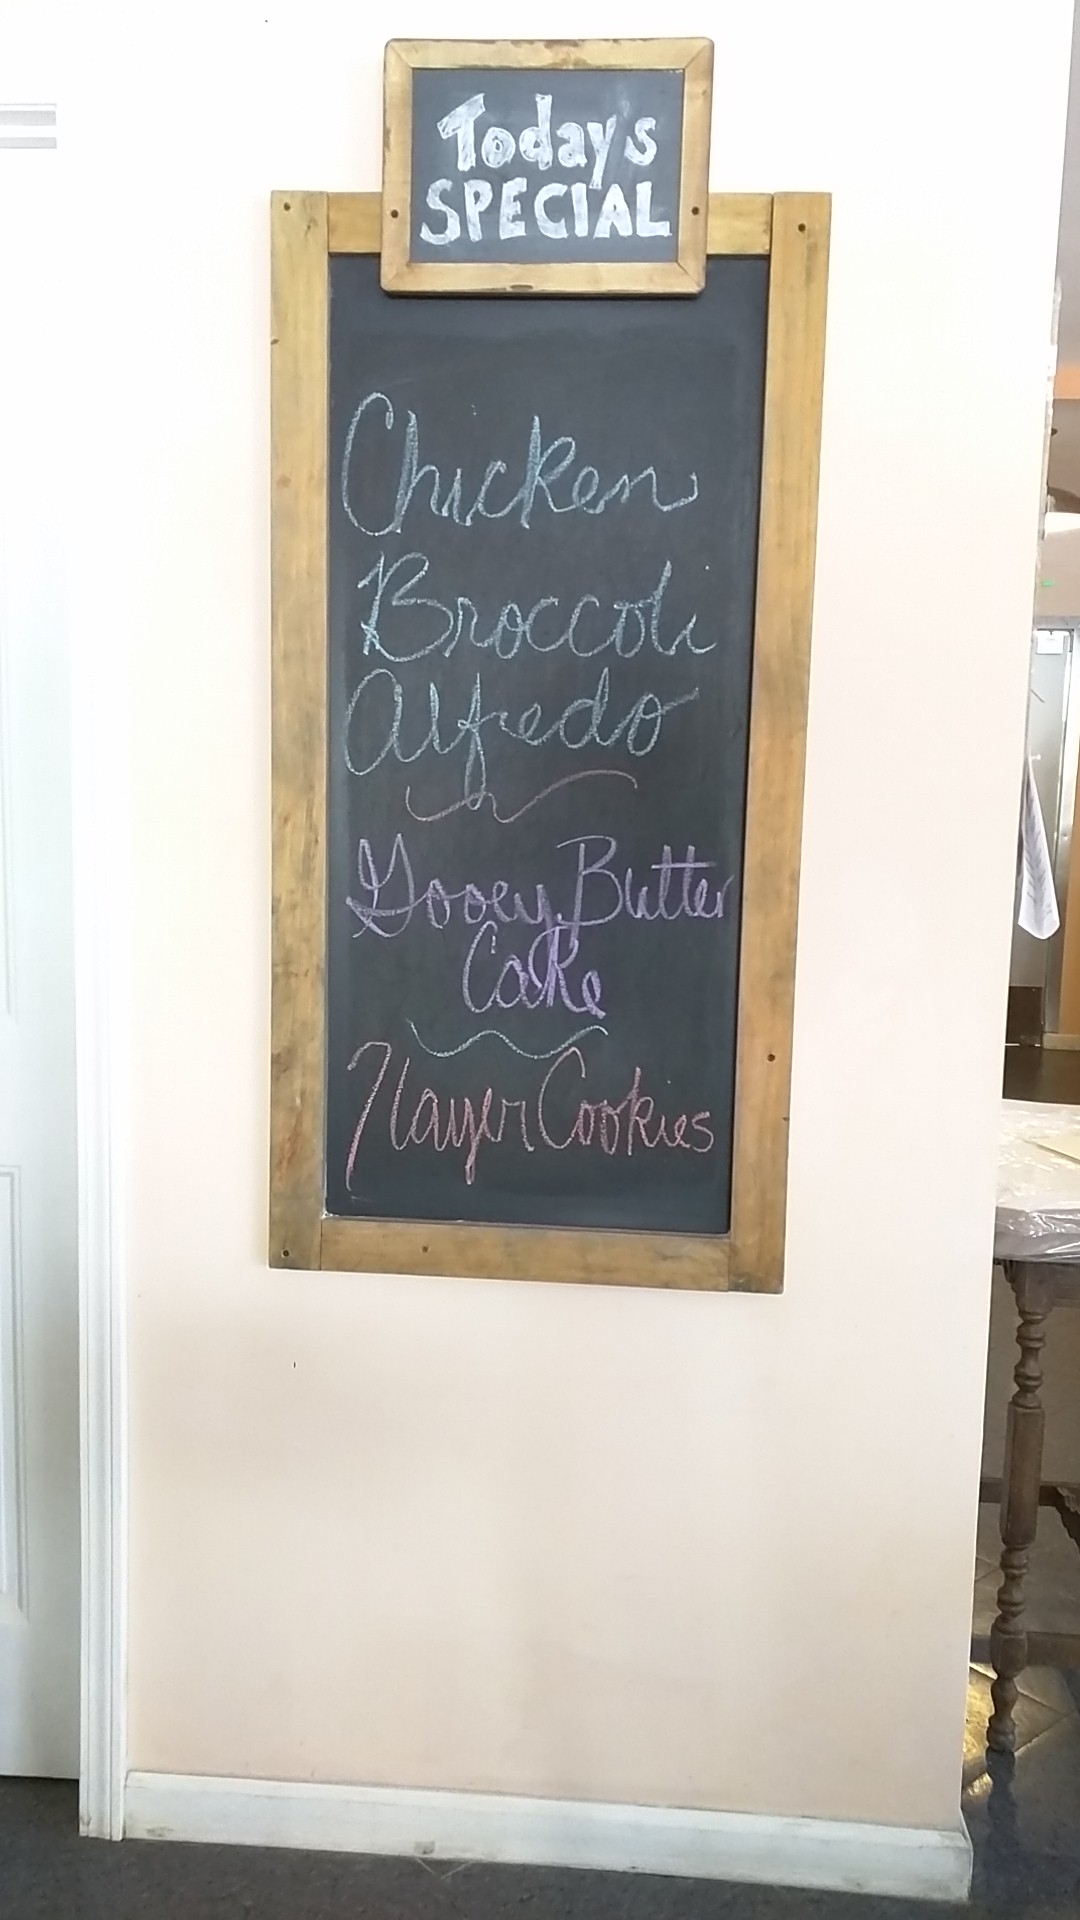 Today's
SPECIAL
Chicken
Broccoli
Alfredo
Gooey Butter
Cake
7 layer Cookies